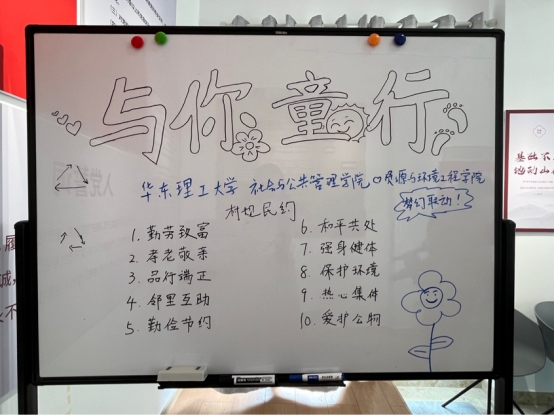 与你童行
华东理工大学 社会与公共管理学院 资源与环境工程学院
梦幻联动！
村坦民约
1. 勤劳致富
2. 孝老敬亲
3. 品行端正
4. 邻里互助
5. 勤俭节约
6. 和平共处
7. 强身健体
8. 保护环境
9. 热心集体
10. 爱护公物